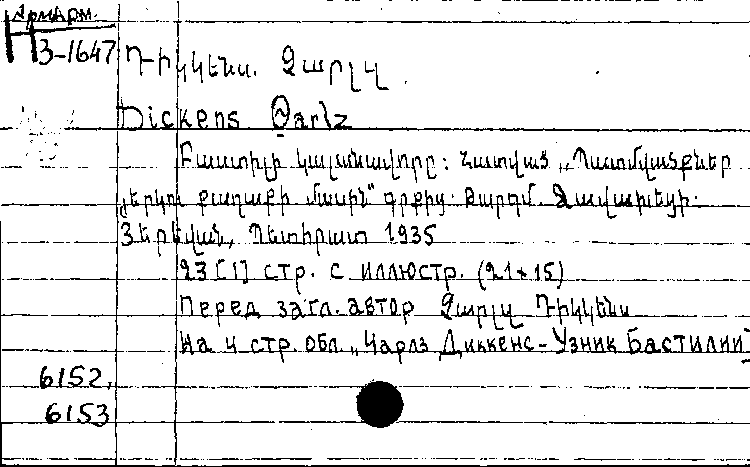 Армарм.
Н 3-1647
Դիկկենս. Չարլզ
Dickens Carlz
Բաստիլի կալանավորը: Հատված „Պատմվածքներ
յերկու քաղաքի մասին“ գրքից. Թարգմ.
Յերեվան, Պետհրատ 1935
23 [1] стр. с иллюстр. (21×15)
Перед загл. автор Չարլզ Դիկկենս
На 4 стр. обл. „Чарлз Диккенс - Узник Бастилии”
6152,
6153